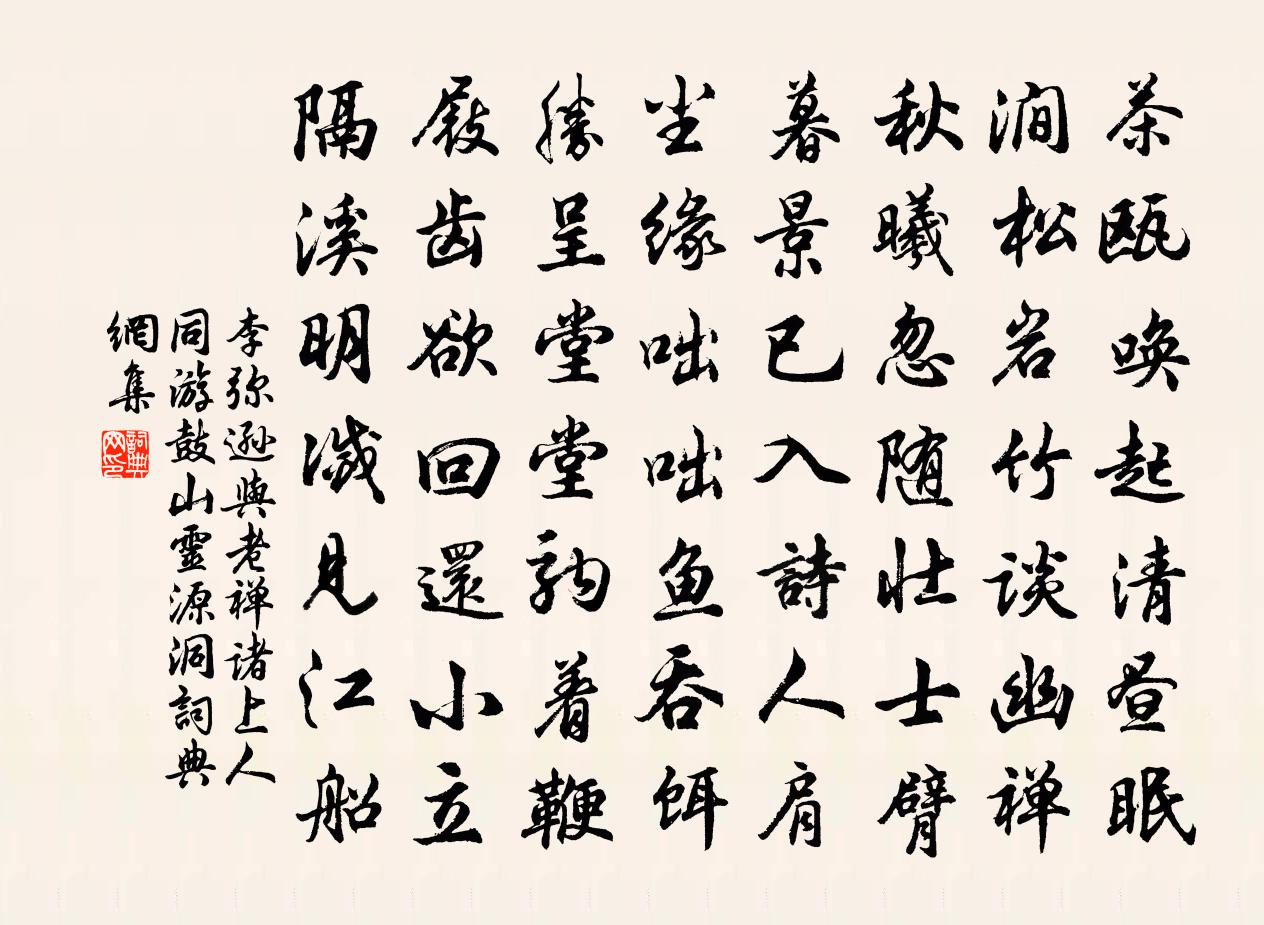 茶瓯唤起清昼眠
涧松岩竹谈幽禅
秋曦忽随壮士臂
暮景已入詩人肩
尘缘咄咄鱼吞饵
胜呈堂堂驹着鞭
屐齿欲回還小立
隔溪明灭见江船
李弥逊與老禅诸上人
同游鼓山靈源洞詞典
網集
詞典
网印